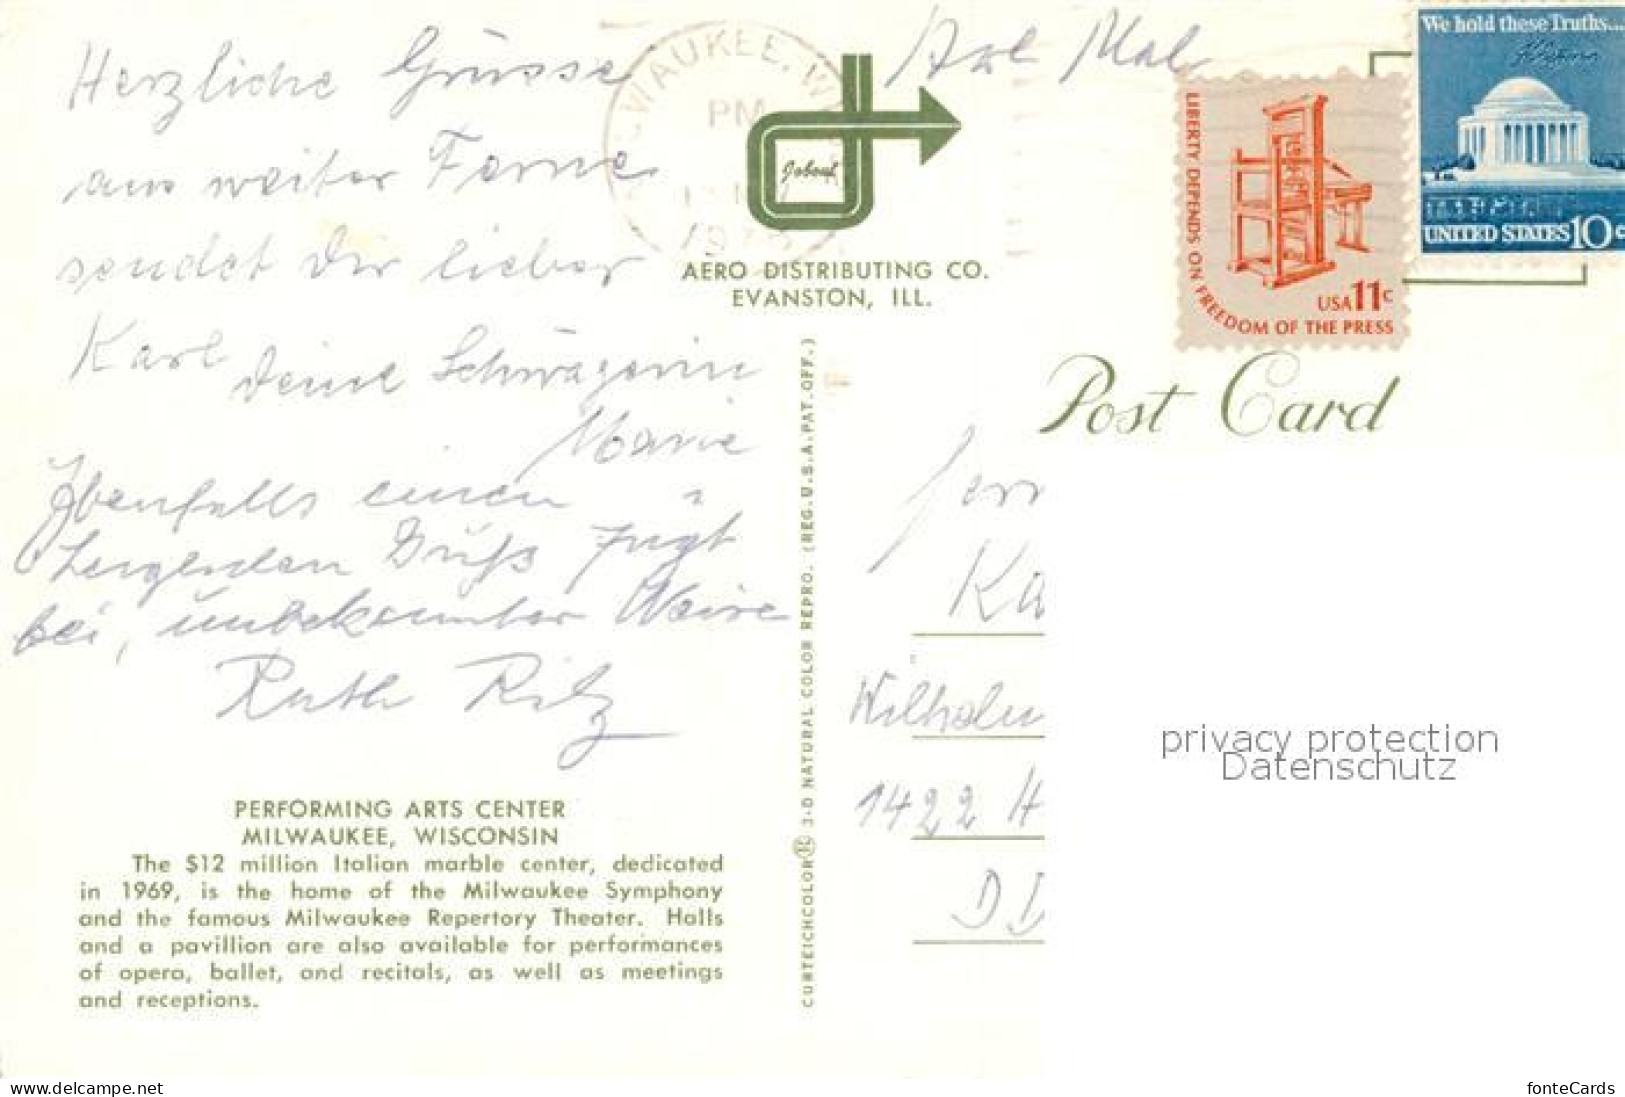 Herzliche Grüsse
aus weiter Ferne
sendet Dir lieber
Karl Deine Schwägerin
Marie
Ebenfalls einen
Grüß fügt
bei, unbekannter Weise
Ruth Ritz
PERFORMING ARTS CENTER
MILWAUKEE, WISCONSIN
The $12 million Italian marble center, dedicated
in 1969, is the home of the Milwaukee Symphony
and the famous Milwaukee Repertory Theater. Halls
and a pavillion are also available for performances
of opera, ballet, and recitals, as well as meetings
and receptions.
MILWAUKEE, W
PM
AERO DISTRIBUTING CO.
EVANSTON, ILL.
CURTEICHCOLOR® 3-D NATURAL COLOR REPRO. (REG. U.S.A. PAT. OFF.)
LIBERTY DEPENDS ON FREEDOM OF THE PRESS
USA 11c
We hold these Truths...
UNITED STATES 10c
Post Card
Ka
Wilhelm
1422 H
privacy protection
Datenschutz
www.delcampe.net
fonteCards